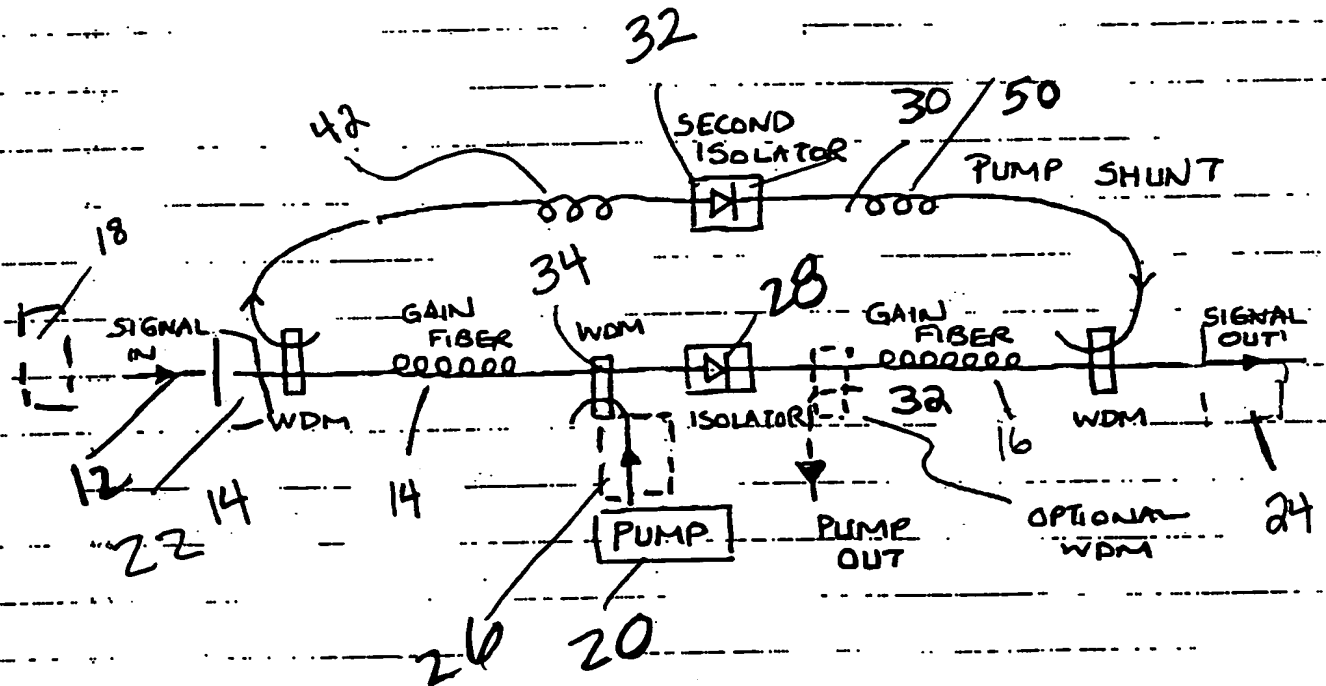 32
42
30
50
SECOND
ISOLATOR
PUMP SHUNT
18
34
28
SIGNAL
IN
GAIN
FIBER
WDM
GAIN
FIBER
SIGNAL
OUT
WDM
ISOLATOR
32
16
WDM
12
14
14
22
26
PUMP
PUMP
OUT
OPTIONAL
WDM
24
20